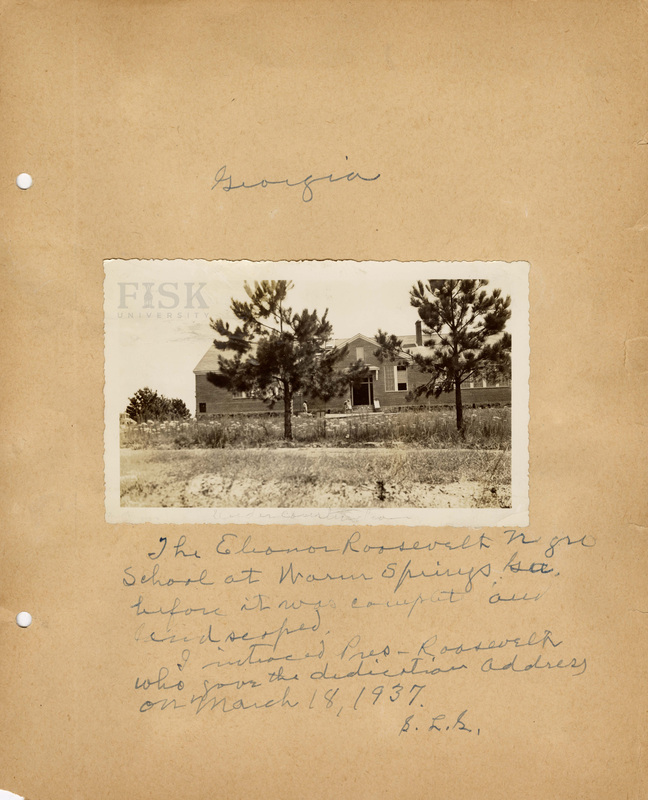 Georgia
FISK
UNIVERSITY
The Eleanor Roosevelt
School at Warm Springs, Ga.
before it was and
landscaped.
I Pres- Roosevelt
who gave the dedication address
on March 18, 1937.
S. L. S.